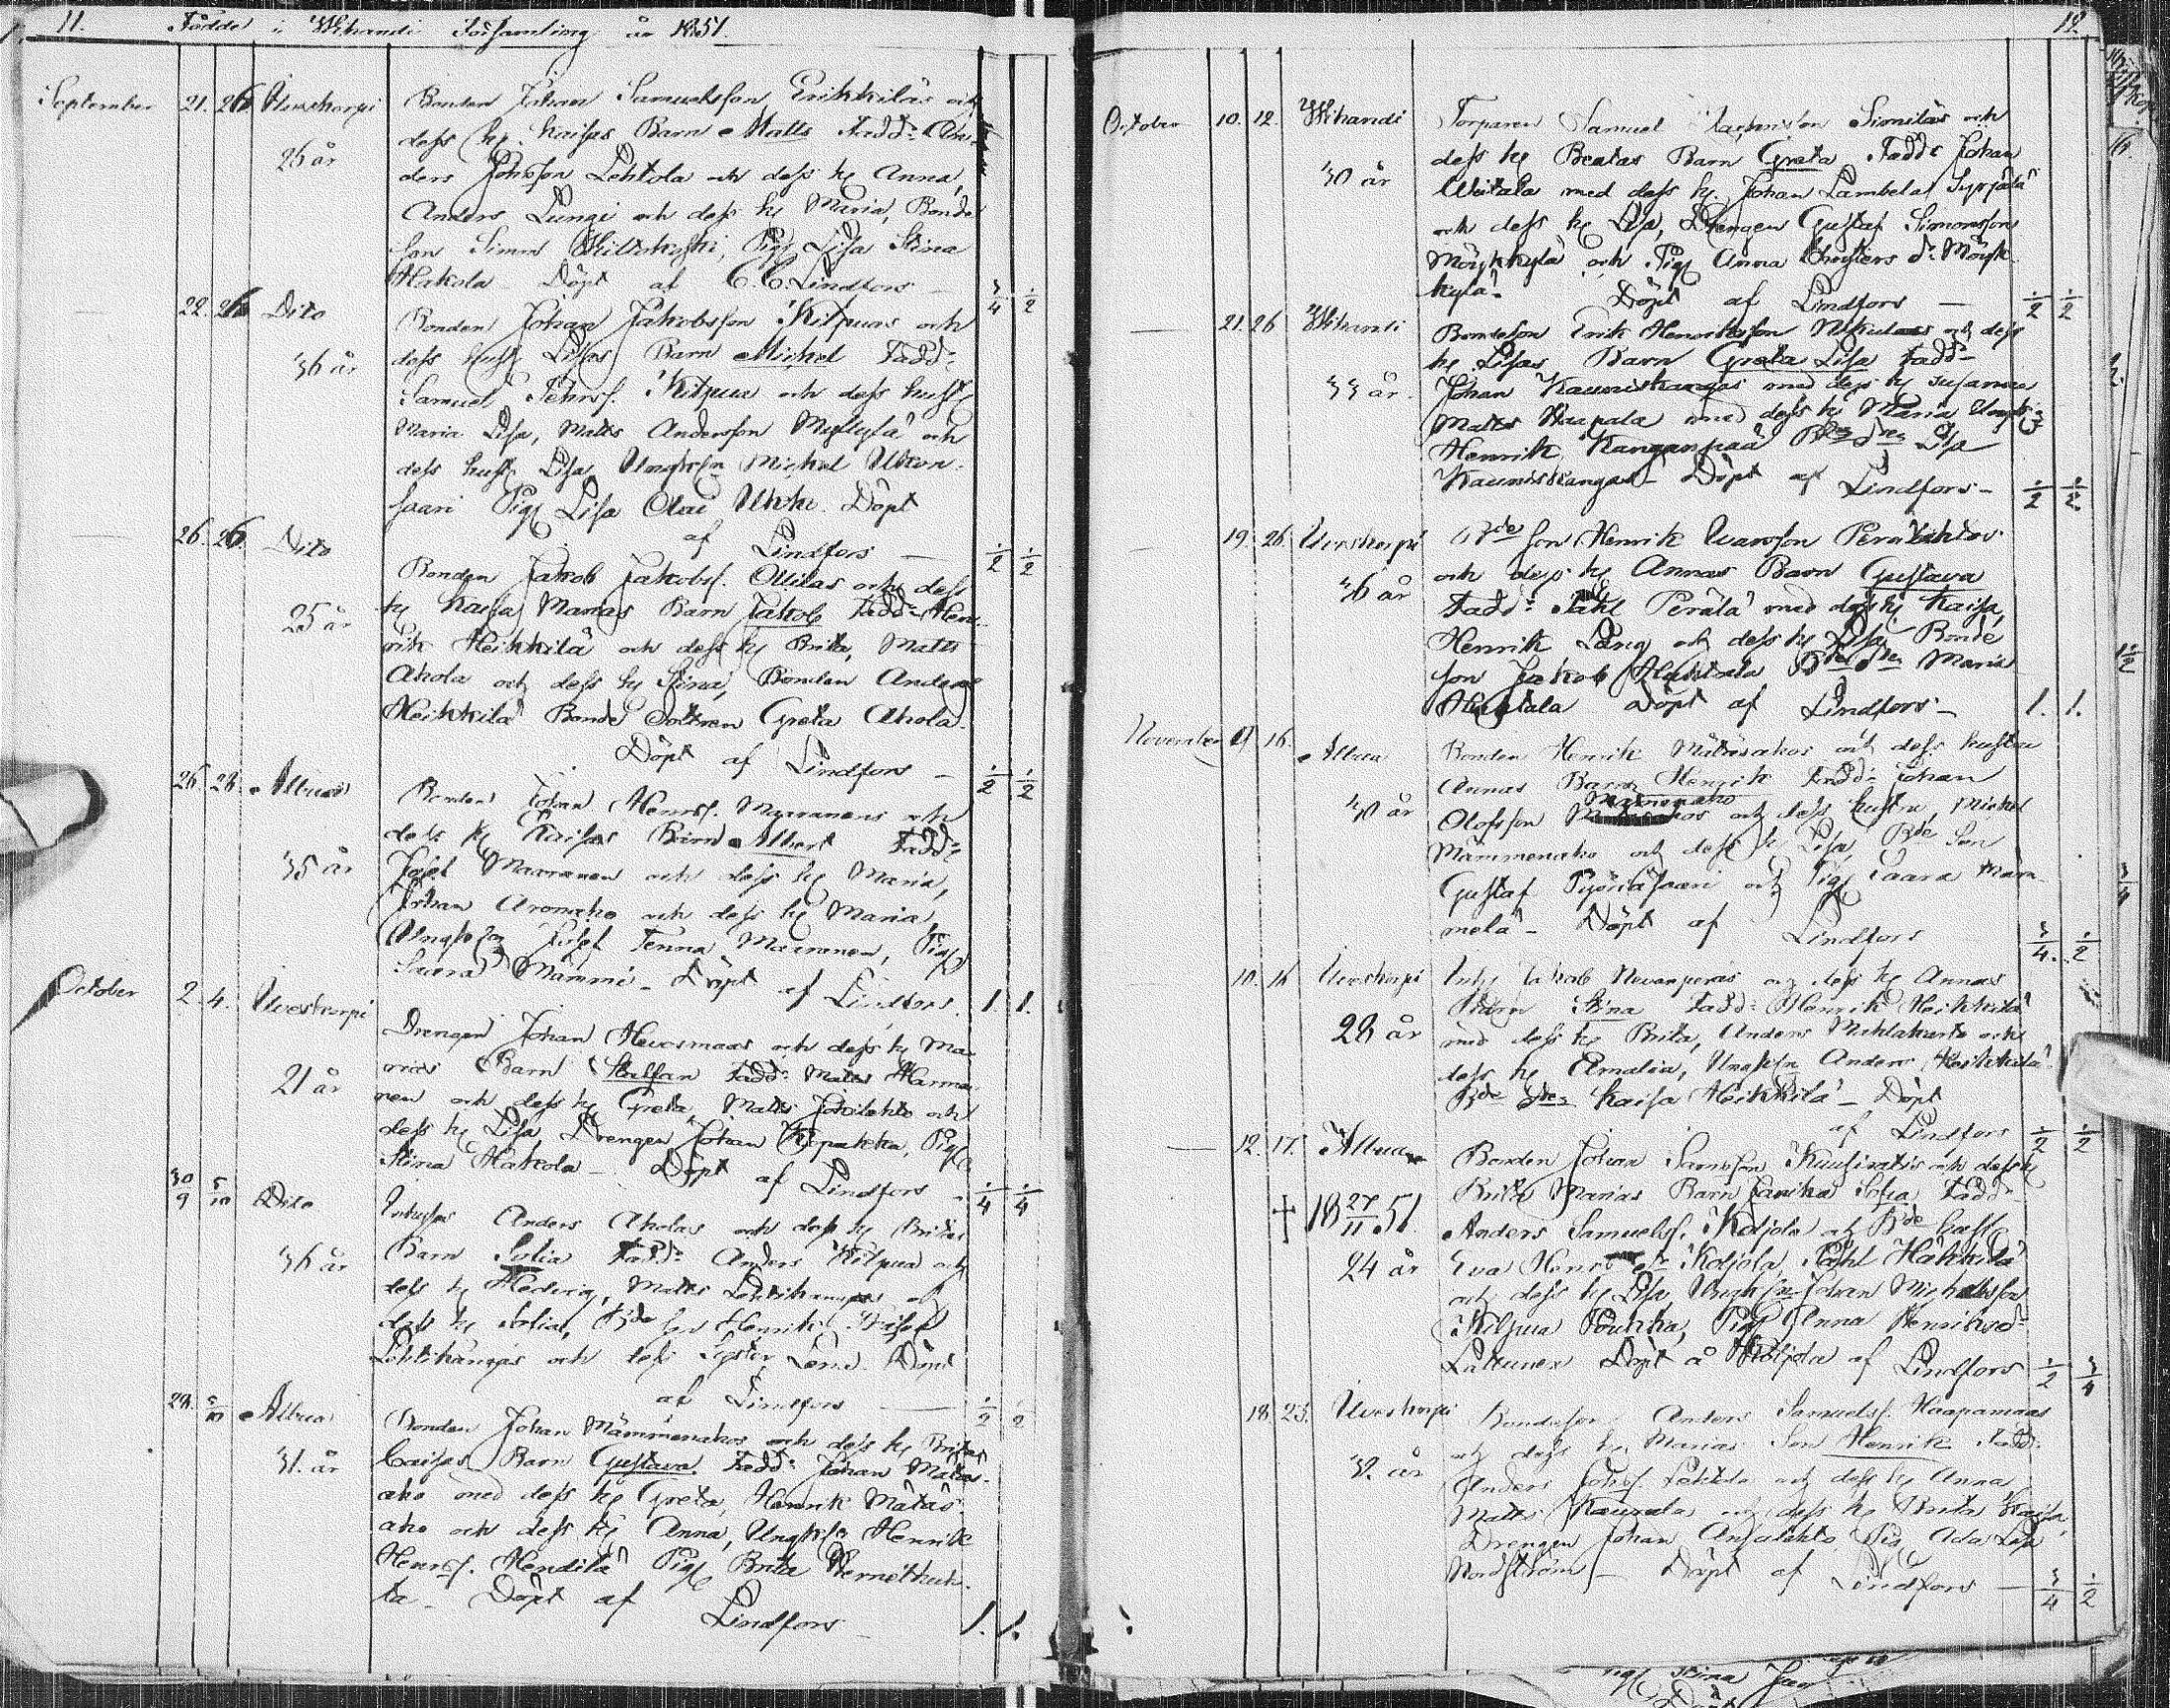 11. Födde i Wihandi Församling år 1851
September 21. 26 Uveskorpi Bonden Johan Samuelsson Erikkiläs och
dess h. Kaisas Barn Matts Fadd: An-
26 år ders Johsson Lehtola och dess h Anna,
Anders Lungi och dess h Maria, Bonde
son Simon Pig Lisa Stina
Hakola Döpt af C. C. Lindfors 3/4 1/2
22. 26 Dito Bonden Johan Jakobsson Kilpuas och
36 år dess hust Lisas Barn Michel Fadd:
Samuel Pehrss. Kilpua och dess hust
Maria Lisa, Matts Andersson Myllylä och
dess hust Lisa Ungk:sn Michel Ulkon-
saari Pig Lisa Olai Ukko. Döpt
af Lindfors 1/2 1/2
26. 26. Dito Bonden Jakob Jakobss. Ollilas och dess
25 år h Kaisa Marias Barn Jakob Fadd: Hen-
rik Heikkilä och dess h Brita, Matts
Ahola och dess h Stina, Bonden Anders
Heikkilä Bonde dottren Greta Ahola.
Döpt af Lindfors 1/2 1/2
26. 28. Alpua Bonden Johan Henrss. Marranens och
dess h Kaisas Barn Albert Fadd:
35 år Josef Marranen och dess h Maria,
Johan Aronaho och dess h Maria
Ungk:sn Josef Tenna Marranen, Pig
Saara Mämmi - Döpt af Lindfors. 1. 1.
October 2. 4. Uveskorpi Drengen Johan Hevosmaas och dess h Ma-
rias Barn Staffan Fadd: Matts Harma-
21 år nen och dess h Greta, Matts Jokilehto och
dess h Lisa Drengen Johan Pig
Stina Hakola - Döpt af Lindfors 1/4 1/4
30/9 5/10 Dito Inhyses Anders Aholas och dess h Britas
36 år Barn Sofia Fadd: Anders Kilpua och
dess h Hedvig, Matts Lehtikangas och
dess h Sofia, Bde son Henrik
Lehtikangas och dess syster Lena. Döpt
af Lindfors 1/2 1/2
28. 5/10 Alpua Bonden Johan Mämmenahos och dess h Britas
31. år Caisas Barn Gustava Fadd: Johan Mätäs-
aho med dess h Greta, Henrik Mätäs-
aho och dess h Anna, Ungk:sn Henrik
Henrss. Hendilä Pig Brita Hernethuh-
ta - Döpt af Lindfors 1. 1.
12.
October 10. 12. Wihandi Torparen Samuel Similäs och
dess h Beatas Barn Greta Fadd: Johan
30 år Uitala med dess h, Johan Lambela Syrjälä
och dess h Lisa, Drengen Gustaf Simonsson
Möykkylä och Pig Anna d:r Möyk-
kylä. Döpt af Lindfors 1/2 1/2
21. 26 Wihandi Bondeson Erik Henriksson och dess
h Lisas Barn Greta Lisa Fadd:
33 år. Johan Kauniskangas med dess h Susanna
Matts Haapala med dess h Maria Ungk:sn
Henrik Kangaspää Bde d:n Lisa
Kauniskangas - Döpt af Lindfors - 1/2 1/2
19. 26. Uveskorpi Bde son Henrik Ivarsson
och dess h Annas Barn Gustava
36 år Fadd: Påhl Perälä med dess h Kaisa,
Henrik Lång och dess h Lisa, Bonde
son Jakob Huhtala Bde d:n Maria
Huhtala Döpt af Lindfors - 1. 1.
November 9 16. Alpua Bonden Henrik Mätäsahos och dess hustru
Annas Barn Henrik Fadd: Johan
40 år Olofsson Mämmenaho och dess hustru, Michel
Mämmenaho och dess h Lisa, Bde Son
Gustaf Pyöriäsaari och Pig Saara Mäm-
melä - Döpt af Lindfors 3/4 1/2
10. 16 Uveskorpi Inhy Jakob Nevanperäs och dess h Annas
Barn Stina Fadd: Henrik Heikkilä
28 år med dess h Brita, Anders och
dess h Amalia, Ungk:sn Anders Heikkilä
Bde d:n Kaisa Heikkilä - Döpt
af Lindfors 1/2 1/2
12. 17. Alpua Bonden Johan Samsson Kuusiratis och dess h
Brita Marias Barn Janika Sofia Fadd:
† 18 27/11 51. Anders Samuelss. Koljola och Bde hust
24 år Eva Henr d:r Koljola, Påhl Häkkilä
och dess h Lisa, Ungk:sn Johan Michelsson
Kilpua Poukka, Pig Anna Henriksd:
Döpt å Koljola af Lindfors 1/2 3/4
18. 23. Uveskorpi Bondeson Anders Samuelss. Haapamaas
och dess h Marias Son Henrik Fadd:
32 år Anders Johss. Lehtola och dess h Anna
Matts Kaurala och dess h Brita Kaisa,
Drengen Johan Pig Ada Lisa
Nordström - Döpt af Lindfors - 3/4 1/2